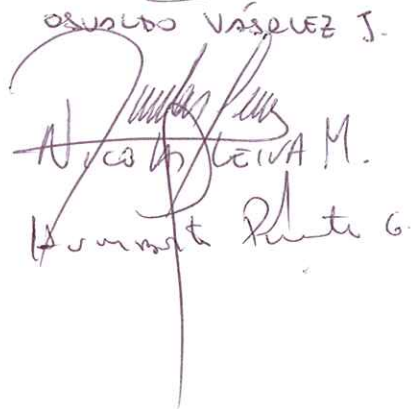 OSVALDO VÁSQUEZ J.
NICOLÁS LEIVA M.
Humberto G.